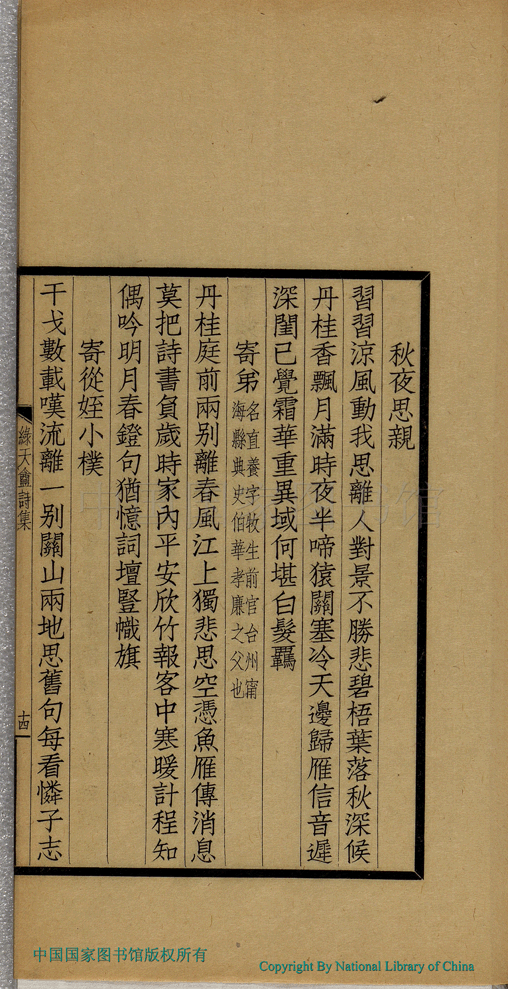 秋夜思親
習習涼風動我思離人對景不勝悲碧梧葉落秋深候
丹桂香飄月滿時夜半啼猿關塞冷天邊歸雁信音遲
深閨已覺霜華重異域何堪白髮羈
寄弟 名直養字牧生前官台州甯
海縣典史伯華孝廉之父也
丹桂庭前兩别離春風江上獨悲思空憑魚雁傳消息
莫把詩書負歲時家內平安欣竹報客中寒暖計程知
偶吟明月春鐙句猶憶詞壇豎幟旗
寄從姪小樸
干戈數載嘆流離一别關山兩地思舊句每看憐子志
綠天盦詩集
十四
中国国家图书馆版权所有
Copyright By National Library of China